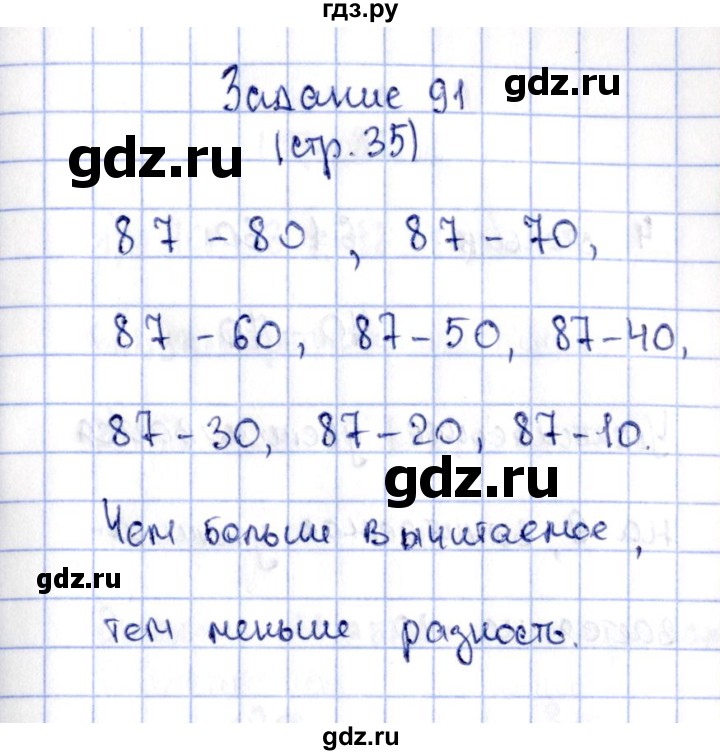 гдз.ру
Задание 91
gdz.ru
(стр. 35)
gdz.ru
87 - 80 , 87 - 70,
87 - 60, 87 - 50, 87 - 40,
87 - 30, 87 - 20, 87 - 10.
gdz.ru
Чем больше вычитаемое,
gdz.ru
тем меньше разность.
gdz.ru